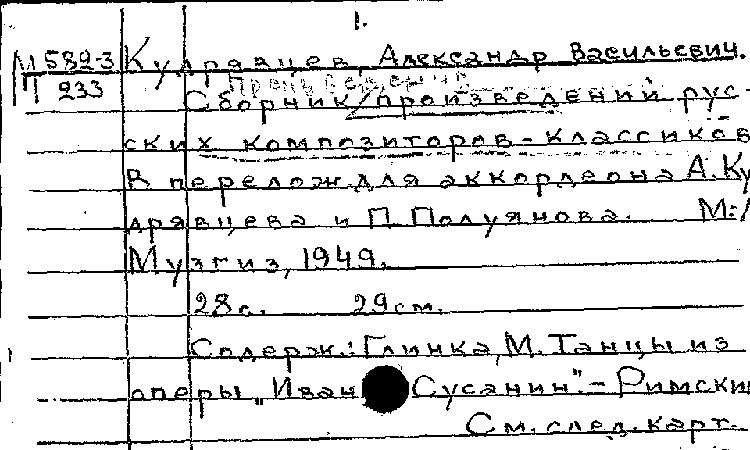 1.
М 582-3 Кудрявцев, Александр Васильевич.
П 233 Произведения
Сборник произведений рус-
ских композиторов-классиков
В перелож. для аккордеона А. Ку
дрявцева и П. Полуянова. М:
Музгиз, 1949.
28 с. 29 см.
Содерж.: Глинка, М. Танцы из
оперы „Иван Сусанин".- Римски
См. след. карт.